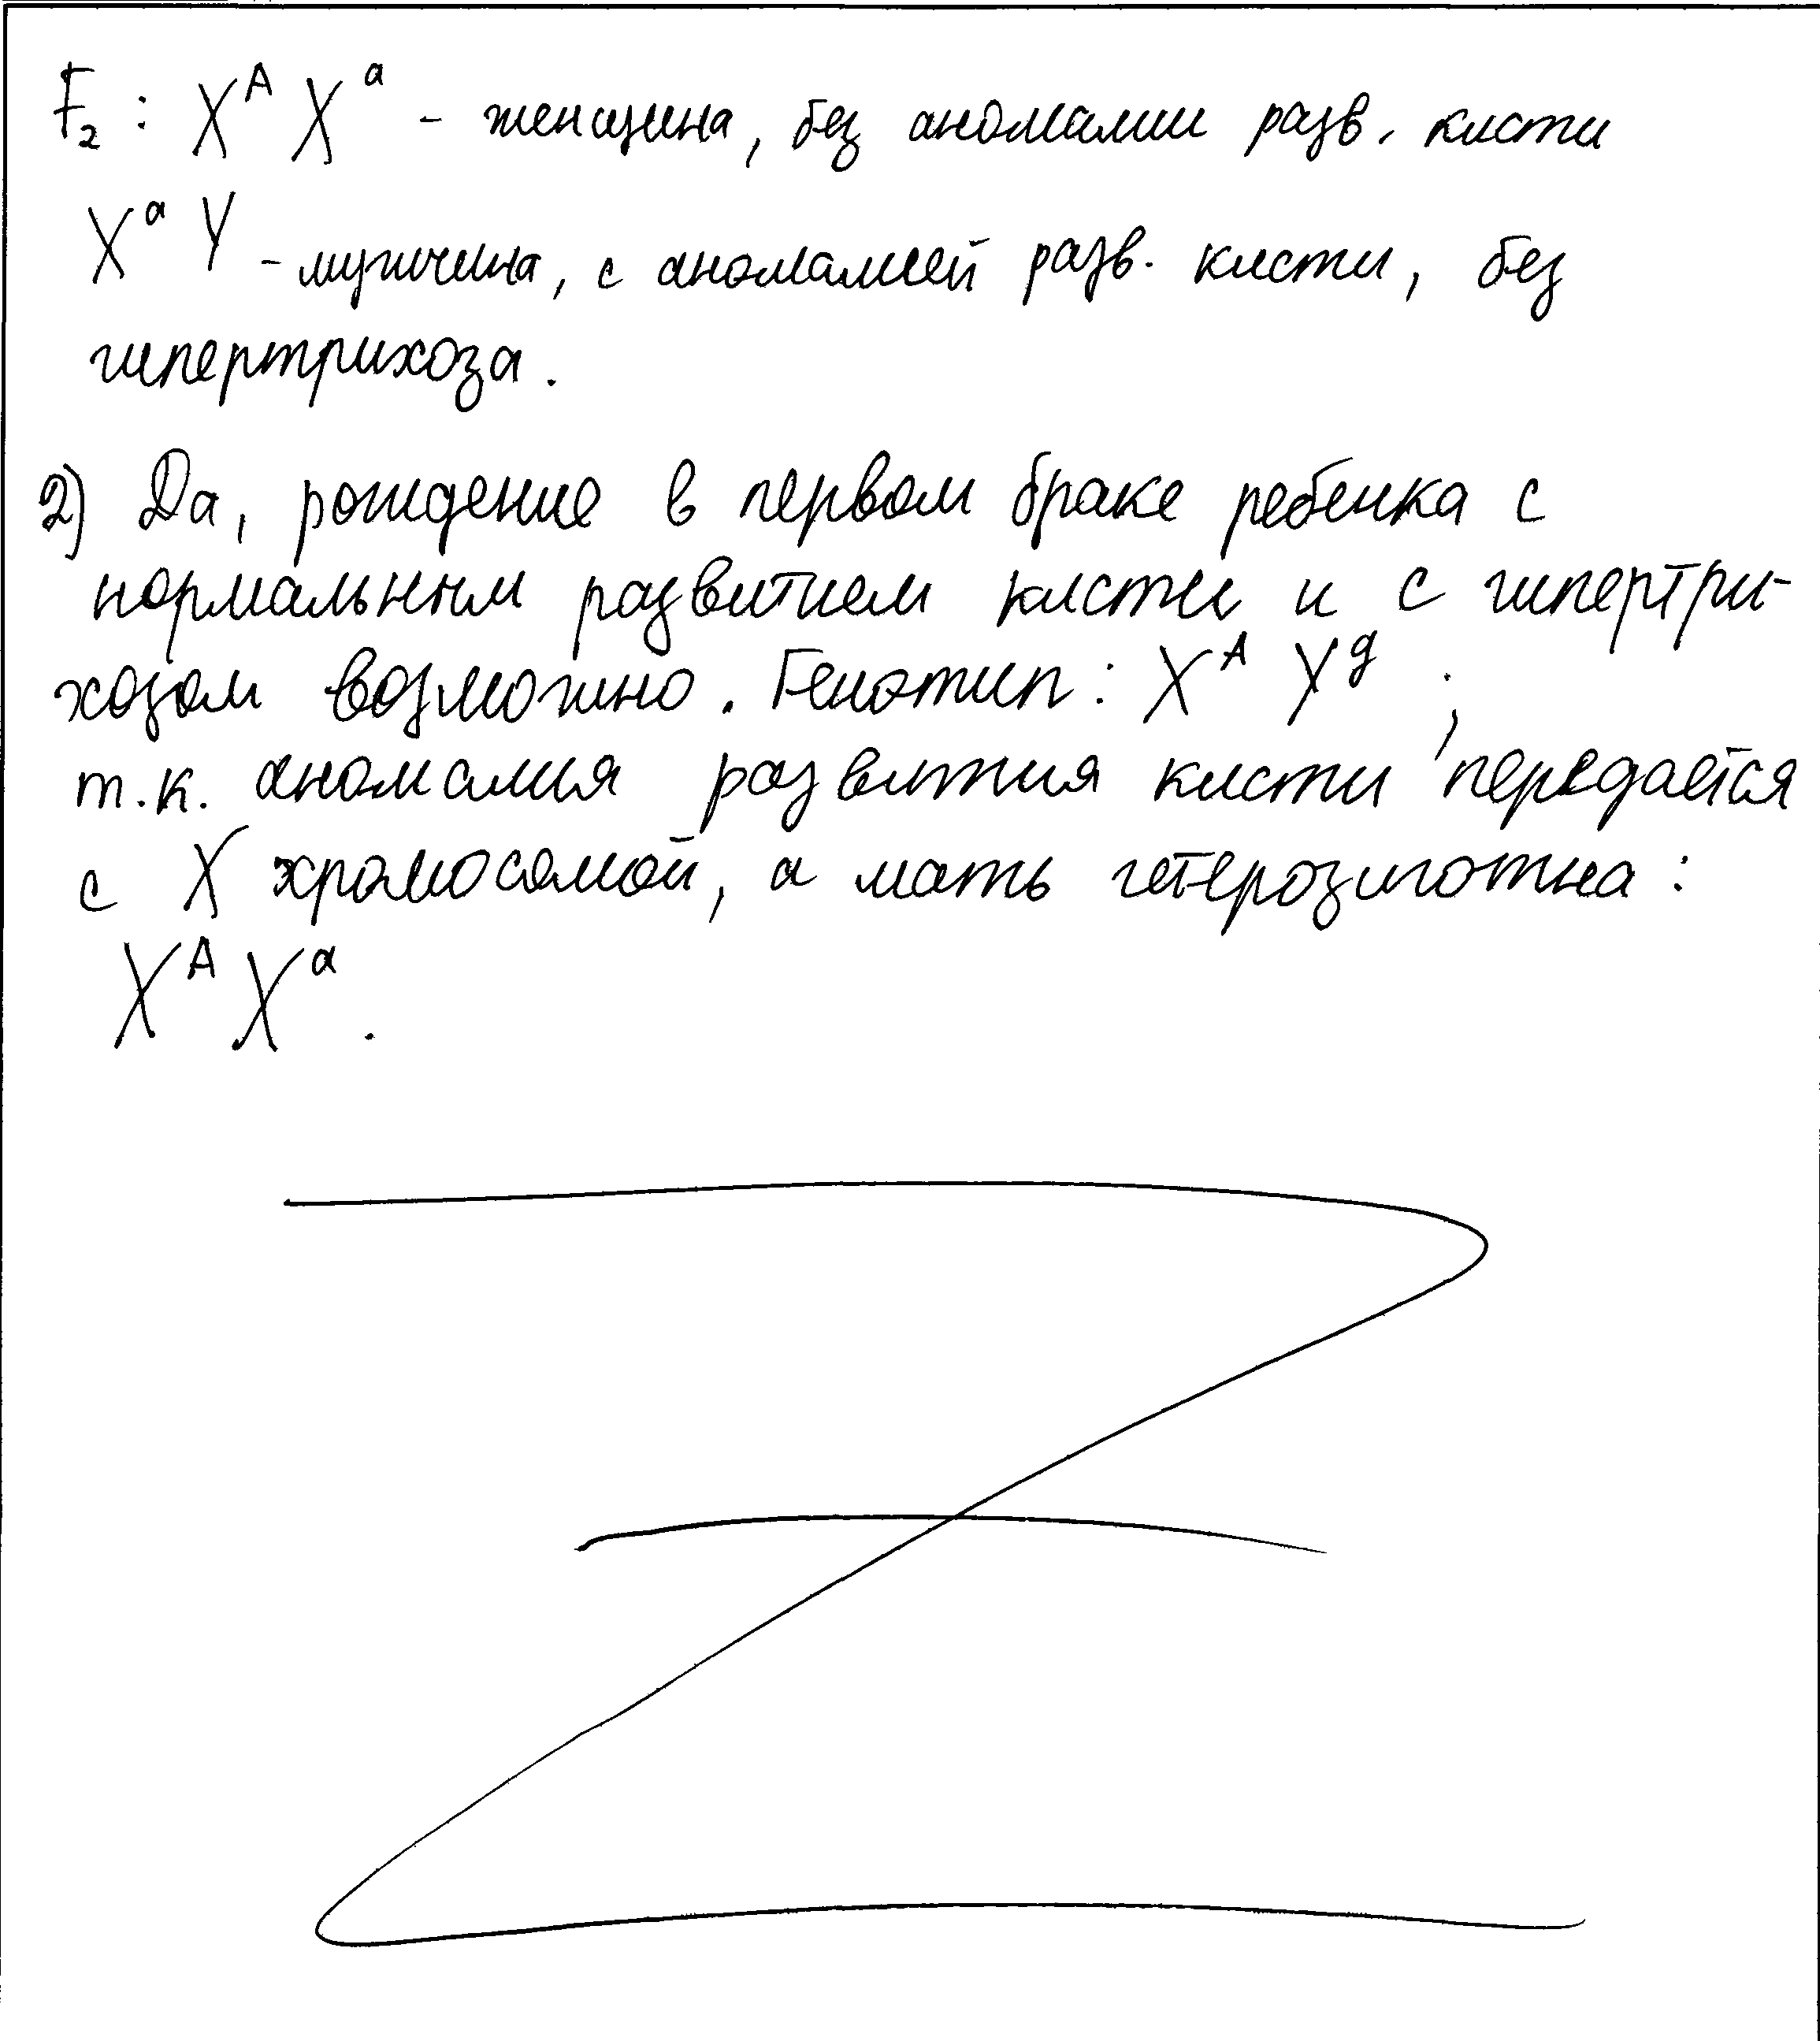 F₂ : Xᴬ Xᵃ - женщина, без аномалии разв. кисти
Xᵃ Y - мужчина, с аномалией разв. кисти, без
гипертрихоза.
2) Да, рождение в первом браке ребенка с
нормальным развитием кисти и с гипертри-
хозом возможно. Генотип: Xᴬ Yᵍ ;
т.к. аномалия развития кисти передаётся
с X хромосомой, а мать гетерозиготна :
Xᴬ Xᵃ .